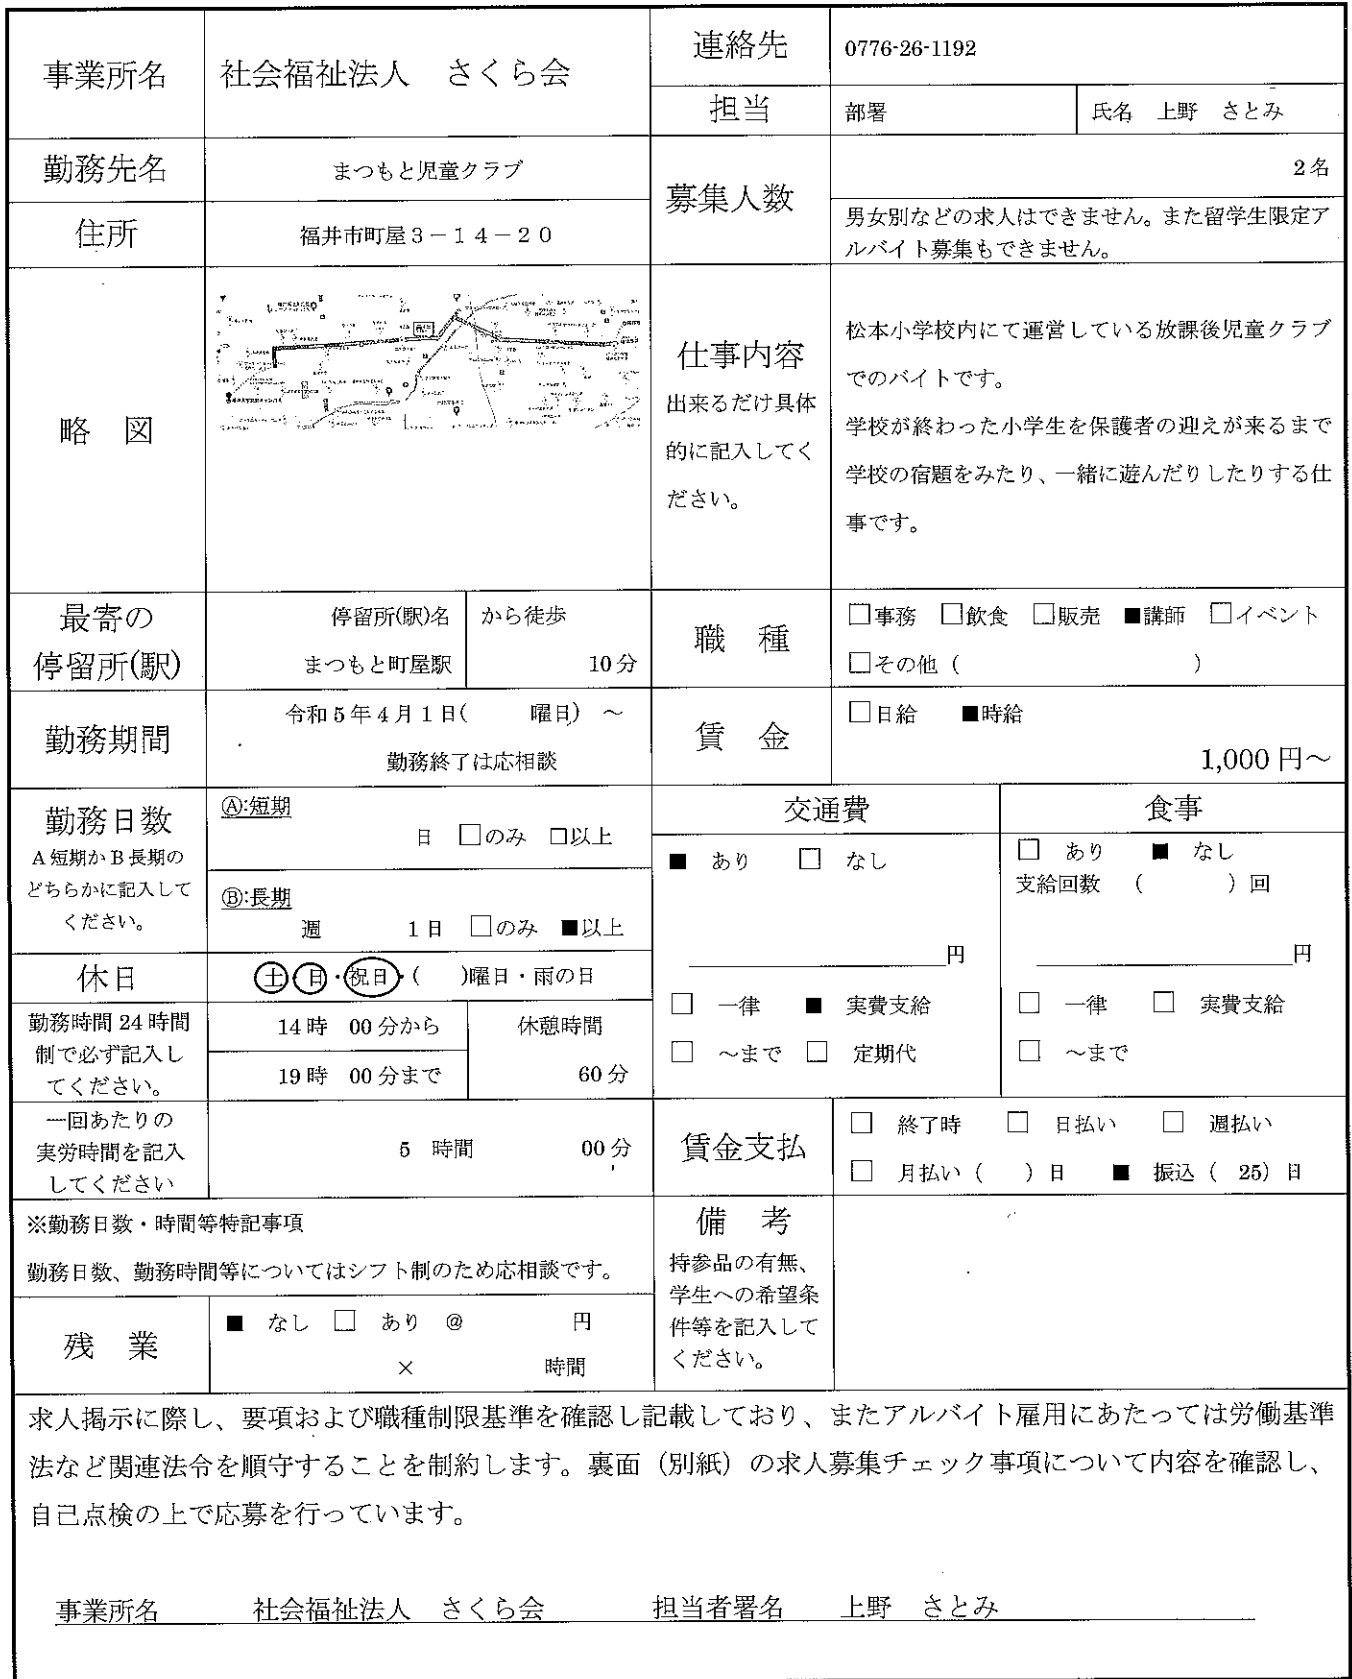 事業所名
社会福祉法人 さくら会
連絡先
0776-26-1192
担当
部署
氏名 上野 さとみ
勤務先名
まつもと児童クラブ
募集人数
2名
住所
福井市町屋3-14-20
男女別などの求人はできません。また留学生限定ア
ルバイト募集もできません。
略 図
仕事内容
出来るだけ具体
的に記入してく
ださい。
松本小学校内にて運営している放課後児童クラブ
でのバイトです。
学校が終わった小学生を保護者の迎えが来るまで
学校の宿題をみたり、一緒に遊んだりしたりする仕
事です。
最寄の
停留所(駅)
停留所(駅)名
まつもと町屋駅
から徒歩
10分
職 種
□事務 □飲食 □販売 ■講師 □イベント
□その他 ( )
勤務期間
令和5年4月1日( 曜日) ～
勤務終了は応相談
賃 金
□日給 ■時給
1,000円～
勤務日数
A短期かB長期の
どちらかに記入して
ください。
Ⓐ:短期
日 □のみ □以上
Ⓑ:長期
週 1日 □のみ ■以上
交通費
■ あり □ なし
円
□ 一律 ■ 実費支給
□ ～まで □ 定期代
食事
□ あり ■ なし
支給回数 ( )回
円
□ 一律 □ 実費支給
□ ～まで
休日
土・日・祝日・( )曜日・雨の日
勤務時間24時間
制で必ず記入し
てください。
14時 00分から
19時 00分まで
休憩時間
60分
一回あたりの
実労時間を記入
してください
5 時間 00分
賃金支払
□ 終了時 □ 日払い □ 週払い
□ 月払い ( )日 ■ 振込 ( 25)日
※勤務日数・時間等特記事項
勤務日数、勤務時間等についてはシフト制のため応相談です。
備 考
持参品の有無、
学生への希望条
件等を記入して
ください。
残 業
■ なし □ あり @ 円
× 時間
求人掲示に際し、要項および職種制限基準を確認し記載しており、またアルバイト雇用にあたっては労働基準
法など関連法令を順守することを制約します。裏面（別紙）の求人募集チェック事項について内容を確認し、
自己点検の上で応募を行っています。
事業所名 社会福祉法人 さくら会 担当者署名 上野 さとみ